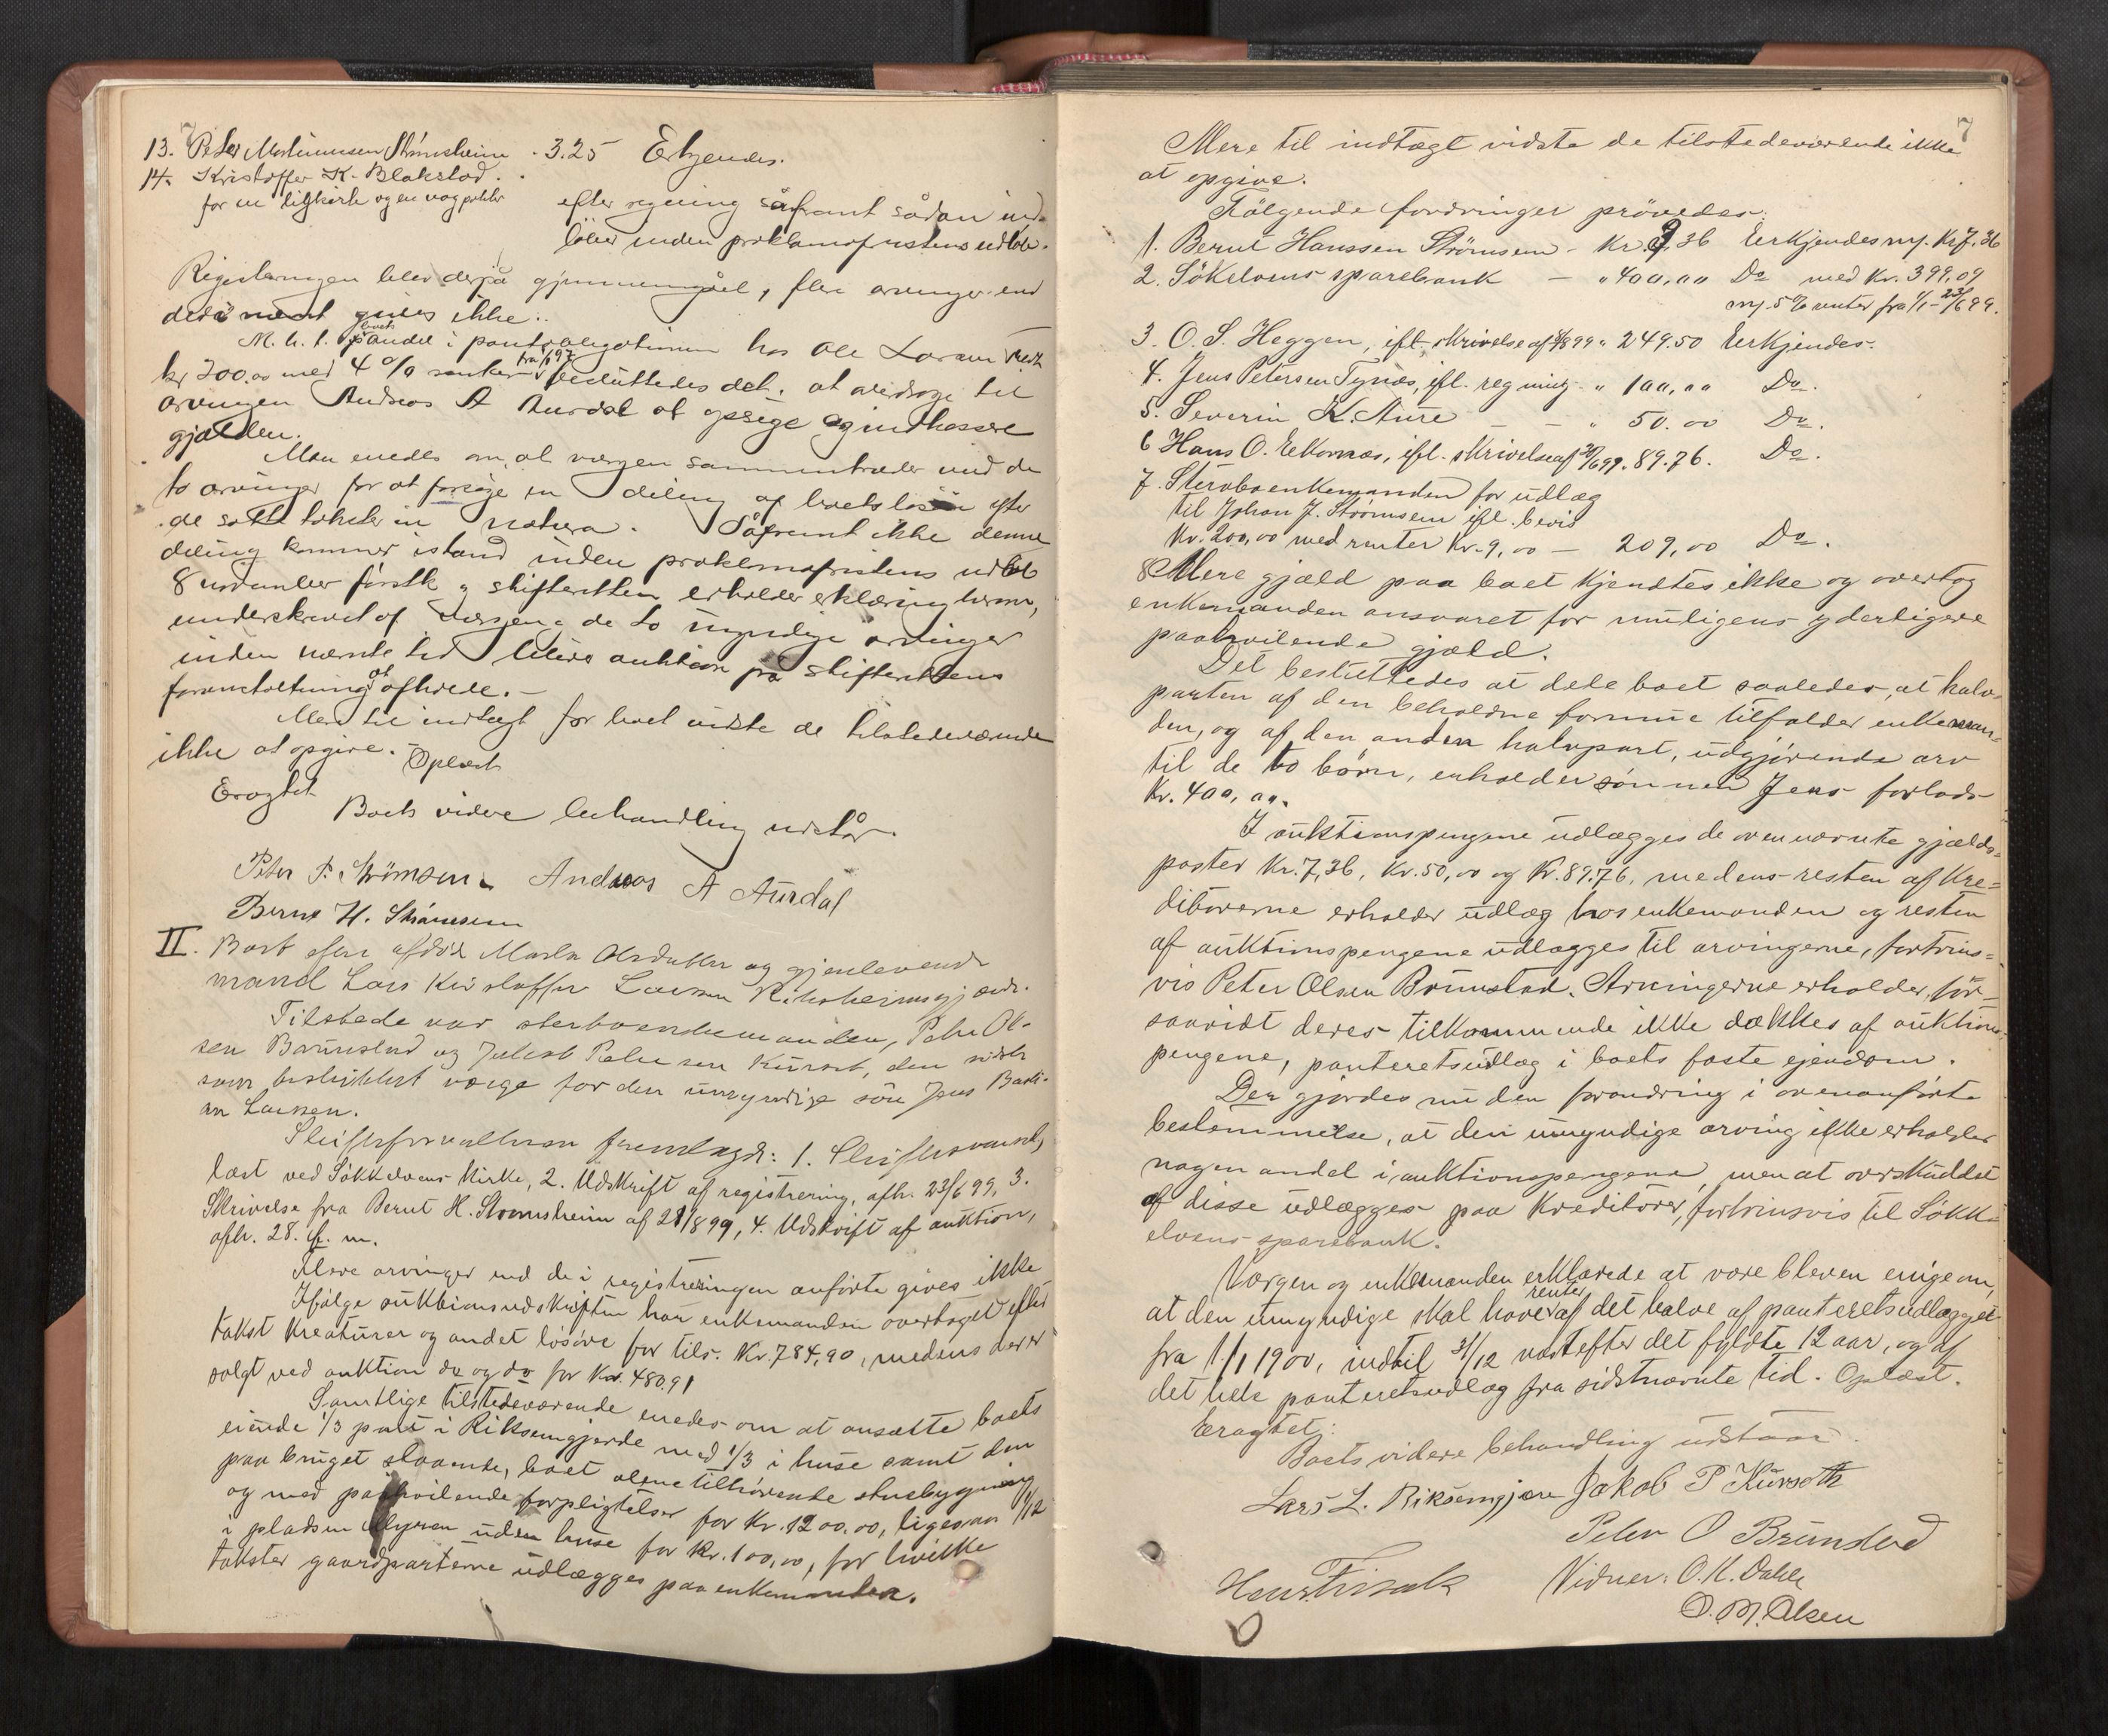 13. Peder Martinussen Strømsheim . 3.25 Erkjendes.
14. Kristoffer K. Blakstad . .
for en ligkiste og en
efter regning såfremt sådan ind-
løber inden proklamafristens udløb.
Registeringen blev derpå gjennemgået, flere arvinger end
deri nævnt gives ikke.
M. h. t. boets andel i pantobligationen hos Ole Larsen
kr 200.00 med 4 % renter fra 1/1 97 besluttedes det at overdrage til
arvingen Andreas A Aurdal at opsige og indkassere
gjælden.
Man enedes om, at værgen sammentræder med de
to arvinger for at forsøge en deling af boets løsøre efter
de satte takster in natura. Såfremt ikke denne
deling kommer istand inden proklamafristens udløb
8 november førstk. og skifteretten erholder erklæring herom,
underskrevet af værgen og de to myndige arvinger
inden nævnte tid bliver auktion på skifterettens
foranstaltning at afholde. -
Mere til indtægt for boet vidste de tilstedeværende
ikke at opgive. - Oplæst
Eragtet
Boets videre behandling udstår.
Peter P. Strömsem. Andreas A Aurdal
Bernt H. Strömsem
II. Boet efter afdøde Marta Olsdatter og gjenlevende
mand Lars Kristoffer Larsen Riksheimsgjærde.
Tilstede var sterboenkemanden, Peter Ol-
sen Brunstad og Jakob Petersen Kurset, den sidste
som beskikket værge for den umyndige søn Jens Basti-
an Larsen.
Skifteforvalteren fremlagde: 1. Skiftevarsel,
læst ved Søkkelvens kirke, 2. Udskrift af registrering, afh. 23/6 99, 3.
Skrivelse fra Bernt H. Stromsheim af 21/8 99, 4. Udskrift af auktion,
afh. 28. f. m.
Flere arvinger end de i registreringen anførte gives ikke
Ifølge auktionsudskriften har enkemanden overtaget efter
takst kreaturer og andet løsøre for tils. Kr. 784,90, medens der er
solgt ved auktion do og do for Kr. 480,91
Samtlige tilstedeværende enedes om at ansætte boets
eiende 1/3 part i Riksemgjerde med 1/3 i huse samt den
paa bruget staaende, boet alene tilhørende stuebygning
og med paahvilende forpligtelser for Kr. 1200.00, ligesom 1/12
i pladsen Myren uden huse for Kr. 100,00, for hvilke
takster gaardparterne udlægges paa enkemanden.
7
Mere til indtægt vidste de tilstedeværende ikke
at opgive.
Følgende fordringer prövedes:
1. Bernt Hanssen Strömsem - Kr. 9,36 Erkjendes m/. Kr 7,36
2. Sökelvens sparebank - " 400,00 Do med Kr. 399,09
m/. 5 % renter fra 1/1 - 23/6 99.
3. O. S. Heggen, ifl. skrivelse af 1/8 99 " 249.50 Erkjendes.
4. Jens Petersen Tynæs, ifl. regning " 100,00 Do.
5. Severin K. Aure - - " 50.00 Do.
6 Hans O. Ekornæs, ifl. skrivelse af 30/6 99. 89.76. Do.
7. Sterboenkemanden for udlæg
til Johan J. Strömsem ifl. bevis
Kr. 200,00 med renter Kr. 9,00 - 209,00 Do.
8 Mere gjæld paa boet kjendtes ikke og overtog
enkemanden ansvaret for muligens yderligere
paahvilende gjæld.
Det besluttedes at dele boet saaledes, at halv-
parten af den beholdne formue tilfalder enkeman-
den, og af den anden halvpart, udgjørende arv
til de to börn, erholder sönnen Jens forlods
Kr. 400,00.
I auktionspengene udlægges de ovennævnte gjælds-
poster Kr. 7,36, Kr. 50,00 og Kr. 89.76, medens resten af Kre-
ditorerne erholder udlæg hos enkemanden og resten
af auktionspengene udlægges til arvingerne, fortrins-
vis Peter Olsen Brunstad. Arvingerne erholder, for
saavidt deres tilkommende ikke dækkes af auktions-
pengene, panteretsudlæg i boets faste ejendom.
Der gjordes nu den forandring i ovenanførte
bestemmelse, at den umyndige arving ikke erholder
nogen andel i auktionspengene, men at overskuddet
af disse udlægges paa Kreditorer, fortrinsvis til Søkk-
elvens sparebank.
Værgen og enkemanden erklærede at være bleven enige om,
at den umyndige skal have renter af det halve af panteretsudlægget
fra 1/1 1900, indtil 31/12 næstefter det fyldte 12 aar, og af
det hele panteretsudlæg fra sidstnævnte tid. Oplæst.
Eragtet:
Boets videre behandling udstaar.
Lars L. Riksemgjære Jakob P Kurseth
Peter O Brunstad
Vidner: O. K. Dahle
O. M. Olsen